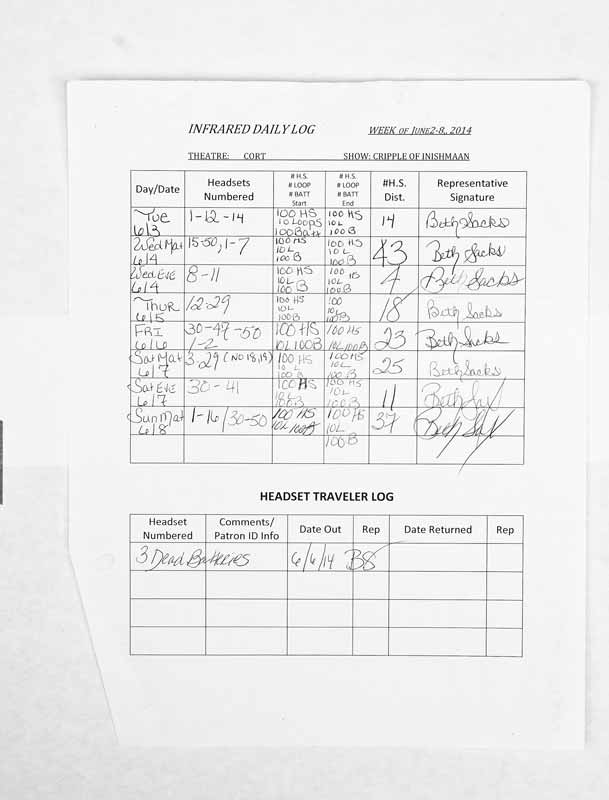 INFRARED DAILY LOG WEEK OF JUNE2-8,, 2014
THEATRE: CORT SHOW: CRIPPLE OF INISHMAAN
Day/Date
Headsets
Numbered
# H.S.
# LOOP
# BATT
Start
# H.S.
# LOOP
# BATT
End
#H.S.
Dist.
Representative
Signature
Tue
6/3
1-12-14
100 HS
10 Loops
100 Batt
100 HS
10 L
100 B
14
Beth Sacks
Wed Mat
6/4
15-50, 1-7
100 HS
10 L
100 B
100 HS
10 L
100 B
43
Beth Sacks
Wed. Eve
6/4
8-11
100 HS
10 L
100 B
100 HS
10 L
100 B
4
Beth Sacks
Thur
6/5
12-29
100 HS
10 L
100 B
100
10 L
100 B
18
Beth Sacks
FRI
6/6
30-47-50
1-2
100 HS
10 L 100 B
100 HS
10 L 100 B
23
Beth Sacks
Sat Mat
6/7
3-29 (NO 18,19)
100 HS
10 L
100 B
100 HS
10 L
100 B
25
Beth Sacks
Sat Eve
6/7
30-41
100 HS
10 L
100 B
100 HS
10 L
100 B
11
Beth Sax
Sun Mat
6/8
1-16/30-50
100 HS
10 L 100 B
100 HS
10 L
100 B
37
Beth Sax
HEADSET TRAVELER LOG
Headset
Numbered
Comments/
Patron ID Info
Date Out
Rep
Date Returned
Rep
3 Dead Batteries 6/6/14 BS